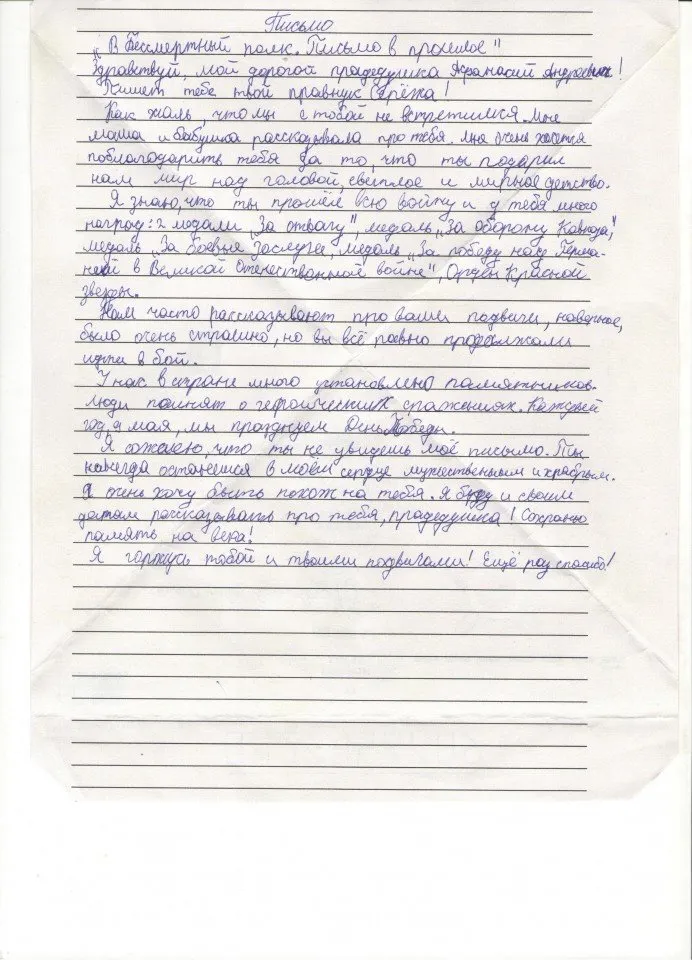 Письмо
„В Бессмертный полк. Письмо в прошлое"
Здравствуй, мой дорогой прадедушка Афанасий Андреевич!
Пишет тебе твой правнук Серёжа!
Как жаль, что мы с тобой не встретимся. Мне
мама и бабушка рассказывала про тебя. Мне очень хочется
поблагодарить тебя за то, что ты подарил
нам мир над головой, светлое и мирное детство.
Я знаю, что ты прошёл всю войну и у тебя много
наград: 2 медали „За отвагу", медаль „За оборону Кавказа",
медаль „За боевые заслуги, медаль „За победу над Герма-
нией в Великой Отечественной войне", Орден Красной
звезды.
Нам часто рассказывают про ваши подвиги, наверное,
было очень страшно, но вы всё равно продолжали
идти в бой.
У нас в стране много установлено памятников.
Люди помнят о героических сражениях. Каждый
год, 9 мая, мы празднуем День Победы.
Я сожалею, что ты не увидешь моё письмо. Ты
навсегда останешся в моём сердце мужественным и храбрым.
Я очень хочу быть похож на тебя. Я буду и своим
детям рассказывать про тебя, прадедушка! Сохраню
память на века!
Я горжусь тобой и твоими подвигами! Ещё раз спасибо!